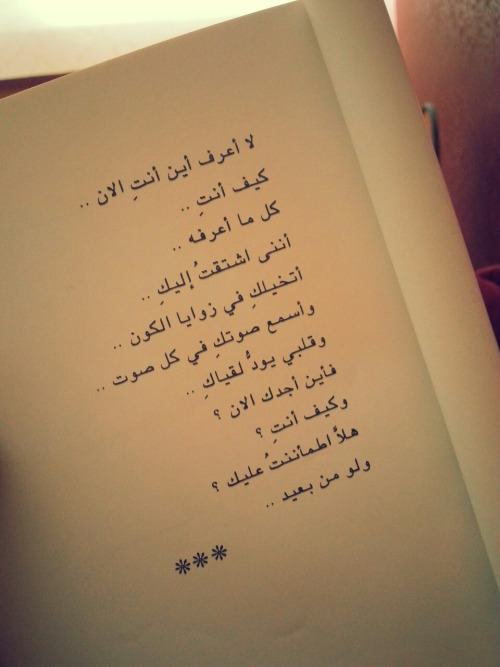 لا أعرف أين أنتِ الان ..
كيف أنتِ ..
كل ما أعرفه ..
أننى اشتقتُ إليكِ ..
أتخيلكِ في زوايا الكون ..
وأسمع صوتكِ في كل صوت ..
وقلبي يودُّ لقياكِ ..
فأين أجدك الان ؟
وكيف أنتِ ؟
هلاَّ اطمأننتُ عليك ؟
ولو من بعيد ..
***